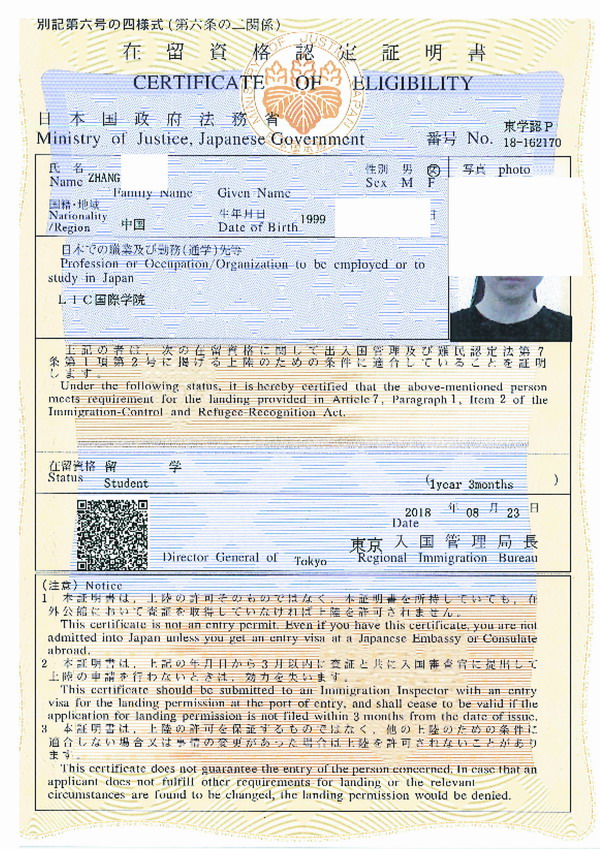 別記第六号の四様式(第六条の二関係)
在留資格認定証明書
CERTIFICATE OF ELIGIBILITY
日本国政府法務省
Ministry of Justice, Japanese Government
番号 No. 東学認P
18-162170
氏名
Name ZHANG
Family Name Given Name
性別 男 女
Sex M F
写真 photo
国籍・地域
Nationality
/Region 中国
生年月日 1999 日
Date of Birth
日本での職業及び勤務(通学)先等
Profession or Occupation/Organization to be employed or to
study in Japan
LIC国際学院
上記の者は、次の在留資格に関して出入国管理及び難民認定法第7
条第1項第2号に掲げる上陸のための条件に適合していることを証明
します。
Under the following status, it is hereby certified that the above-mentioned person
meets requirement for the landing provided in Article 7, Paragraph 1, Item 2 of the
Immigration-Control and Refugee-Recognition Act.
在留資格 留 学
Status Student
(1year 3months )
2018 年 08 月 23 日
Date
東京 入国管理局長
Director General of Tokyo Regional Immigration Bureau
(注意) Notice
1 本証明書は、上陸の許可そのものではなく、本証明書を所持していても、在
外公館において査証を取得していなければ上陸を許可されません。
This certificate is not an entry permit. Even if you have this certificate, you are not
admitted into Japan unless you get an entry visa at a Japanese Embassy or Consulate
abroad.
2 本証明書は、上記の年月日から3月以内に査証と共に入国審査官に提出して
上陸の申請を行わないときは、効力を失います。
This certificate should be submitted to an Immigration Inspector with an entry
visa for the landing permission at the port of entry, and shall cease to be valid if the
application for landing permission is not filed within 3 months from the date of issue.
3 本証明書は、上陸の許可を保証するものではなく、他の上陸のための条件に
適合しない場合又は事情の変更があった場合は上陸を許可されないことがあり
ます。
This certificate does not guarantee the entry of the person concerned. In case that an
applicant does not fulfill other requirements for landing or the relevant
circumstances are found to be changed, the landing permission would be denied.